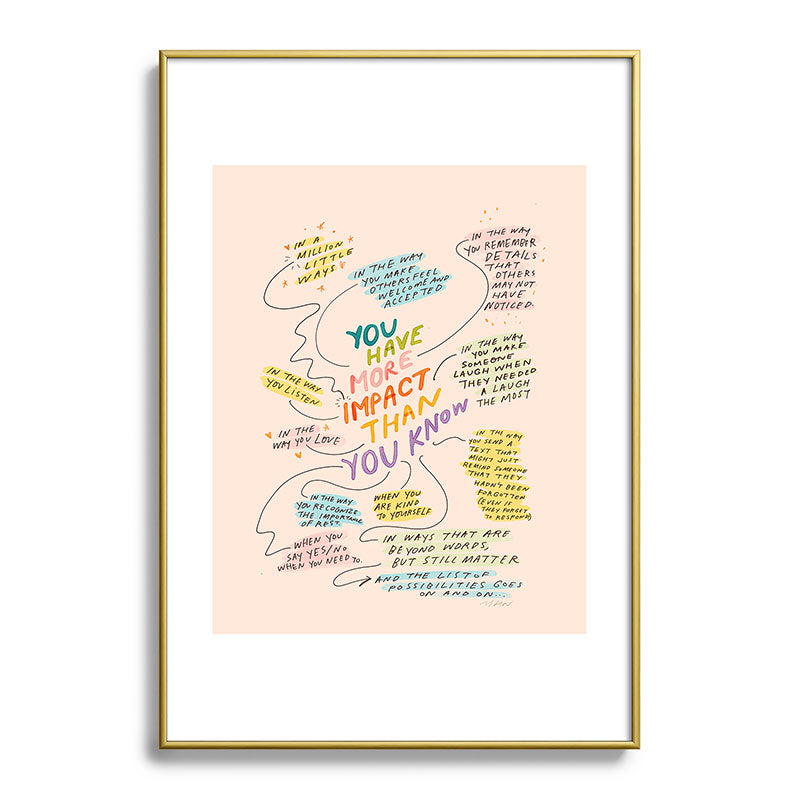 IN A
MILLION
LITTLE
WAYS
IN THE WAY
YOU MAKE
OTHERS FEEL
WELCOME AND
ACCEPTED.
IN THE WAY
YOU REMEMBER
DETAILS
THAT
OTHERS
MAY NOT
HAVE
NOTICED.
YOU
HAVE
MORE
IMPACT
THAN
YOU KNOW
IN THE WAY
YOU MAKE
SOMEONE
LAUGH WHEN
THEY NEEDED
A LAUGH
THE MOST
IN THE WAY
YOU LISTEN
IN THE
WAY YOU LOVE
IN THE WAY
YOU SEND A
TEXT THAT
MIGHT JUST
REMIND SOMEONE
THAT THEY
HADN'T BEEN
FORGOTTEN
(EVEN IF
THEY FORGET
TO RESPOND)
IN THE WAY
YOU RECOGNIZE
THE IMPORTANCE
OF REST.
WHEN YOU
ARE KIND
TO YOURSELF
WHEN YOU
SAY YES/NO
WHEN YOU NEED TO.
IN WAYS THAT ARE
BEYOND WORDS,
BUT STILL MATTER
AND THE LIST OF
POSSIBILITIES GOES
ON AND ON...
MHN